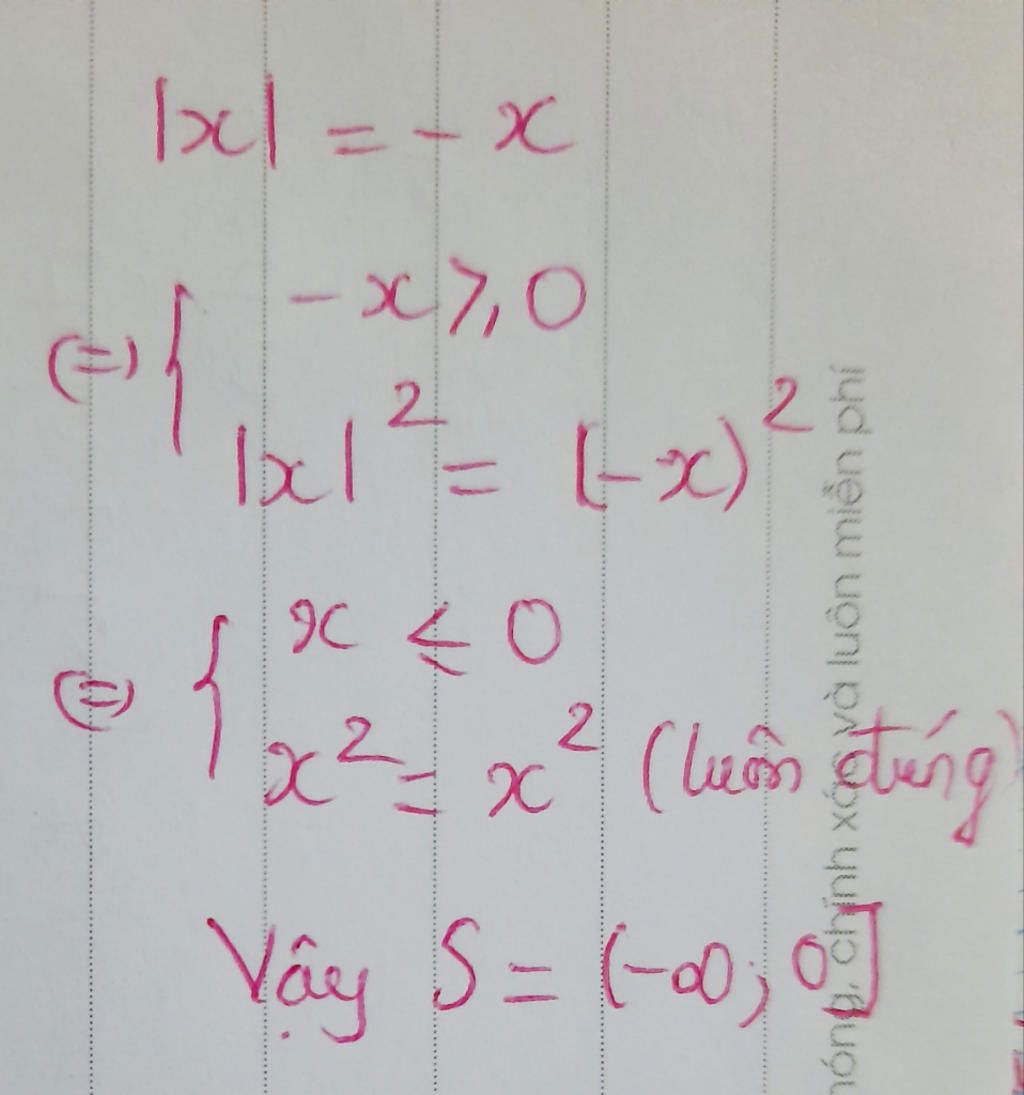 |x| = - x
(=) { - x ≥ 0
|x|² = (-x)²
(=) { x ≤ 0
x² = x² (luôn đúng)
Vậy S = (-∞; 0]
hóng, chính xác và luôn miễn phí